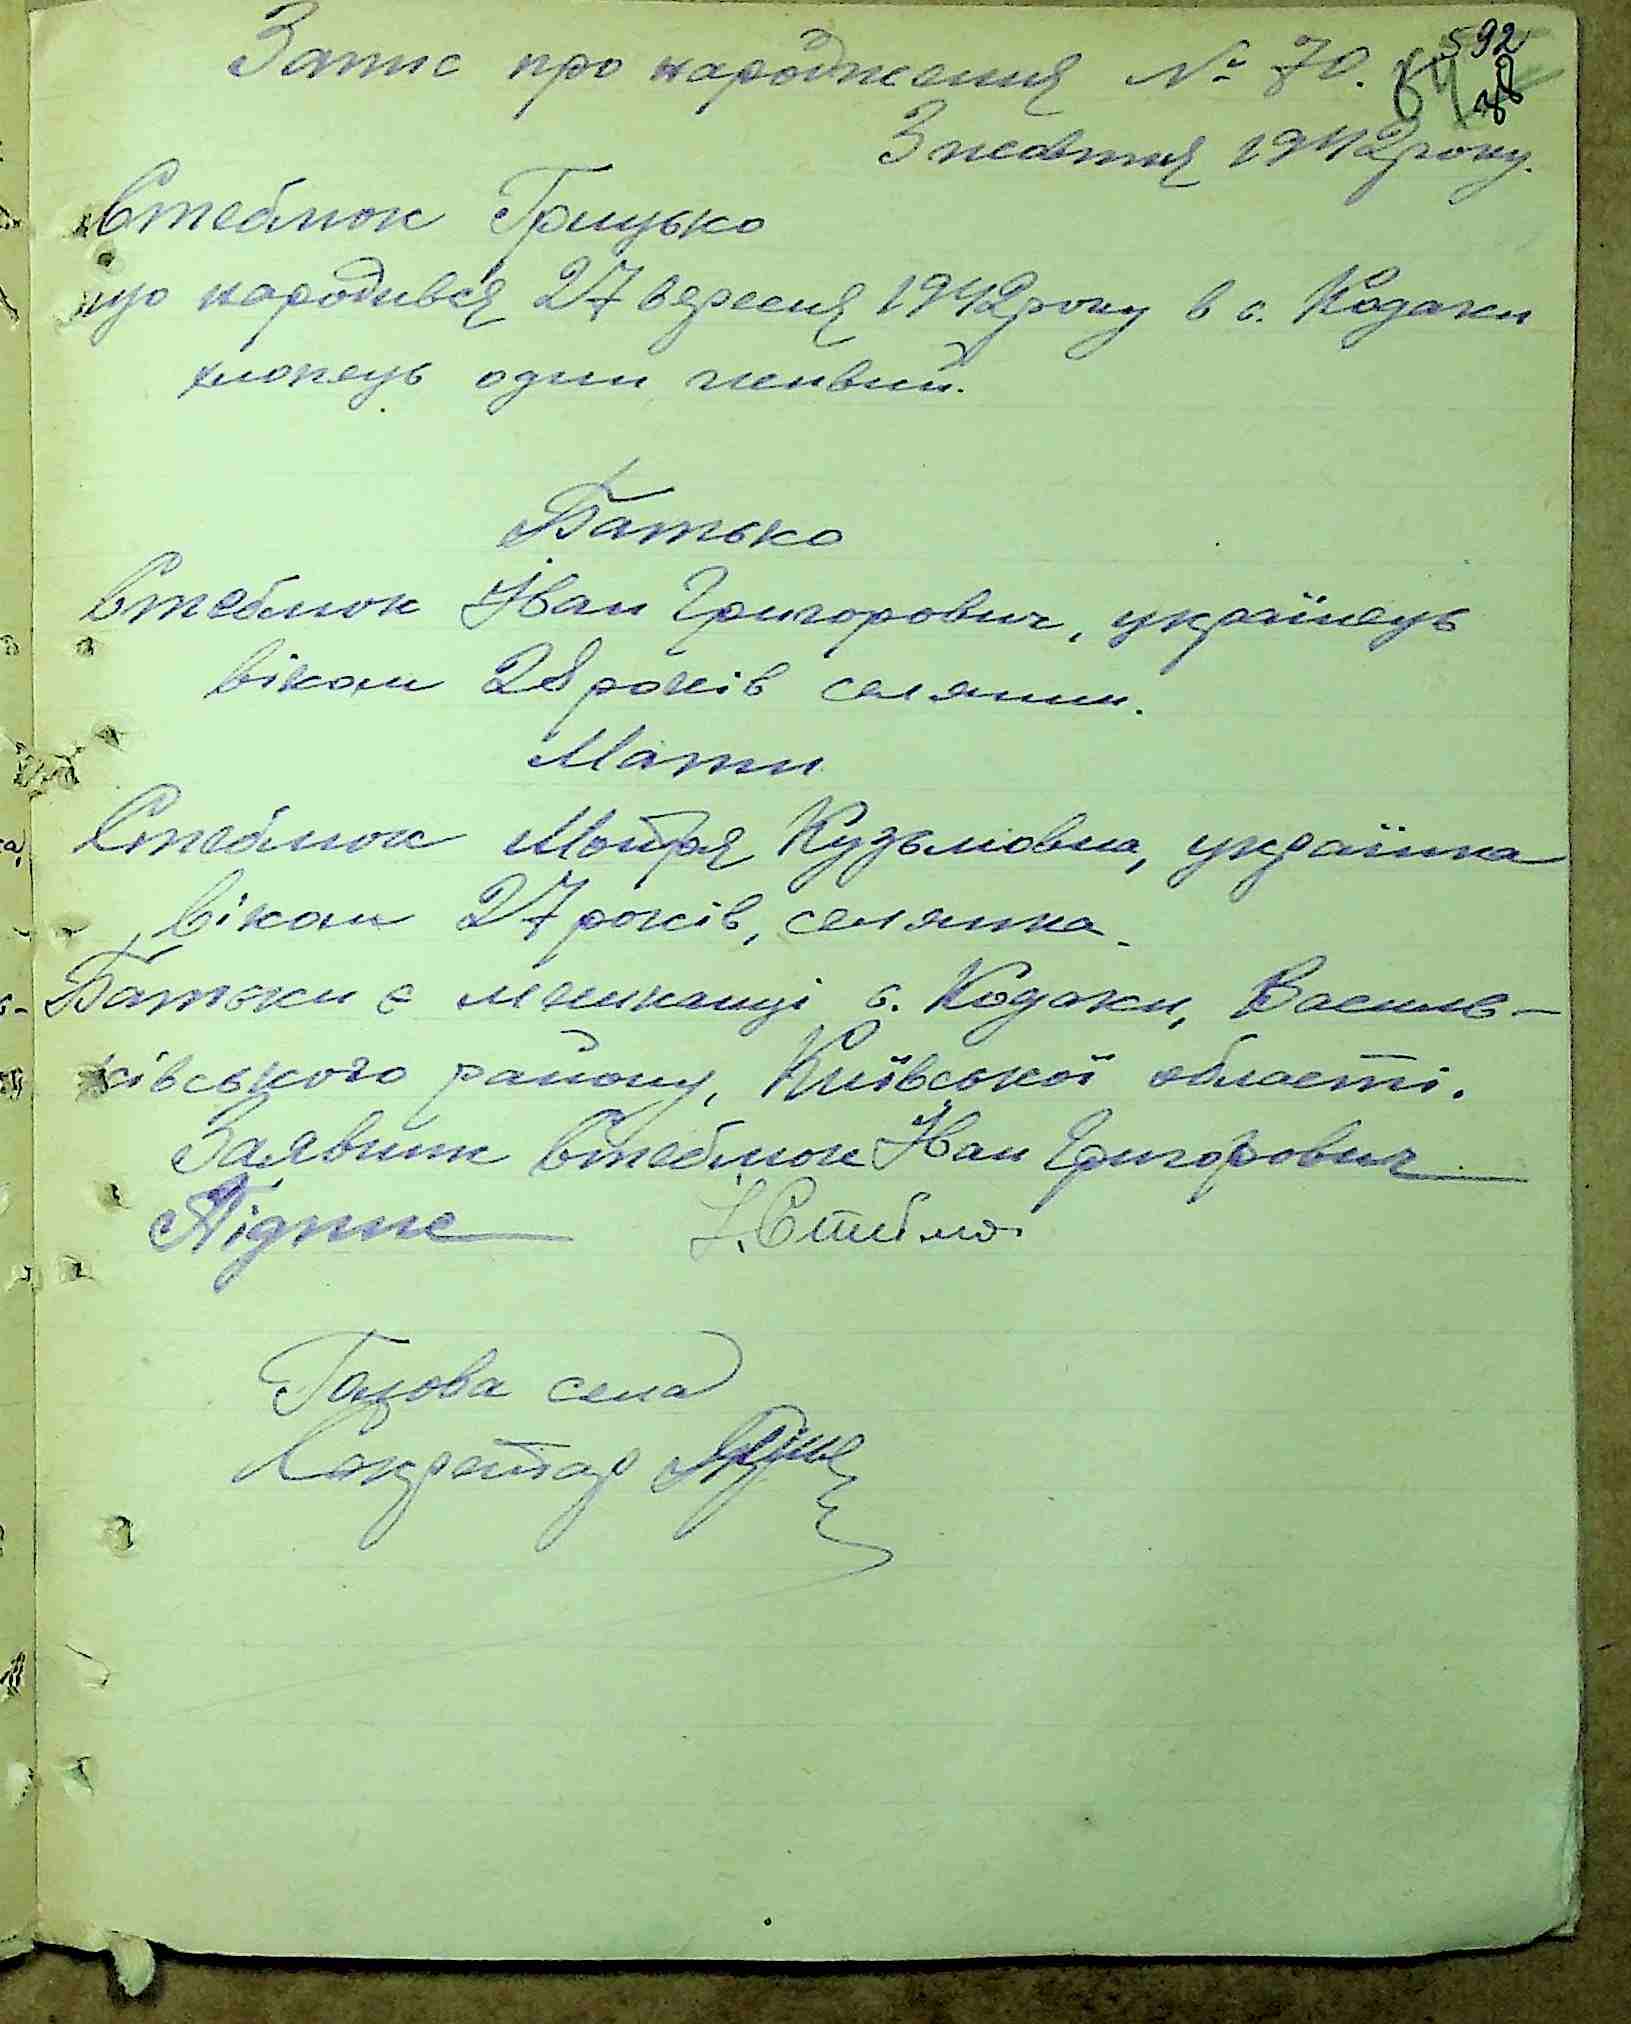 Запис про народження № 70.
592
64 78
3 жовтня 1942 року.
Стеблюк Грицько
що народився 27 вересня 1942 року в с. Кодаки
хлопець один живий.
Батько
Стеблюк Іван Григорович, українець
віком 28 років селянин.
Мати
Стеблюк Мотря Кузьмовна, українка
віком 27 років, селянка.
Батьки є мешканці с. Кодаки, Василь-
ківського району, Київської області.
Заявник Стеблюк Іван Григорович
Підпис І. Стеблю
Голова села
Секретар